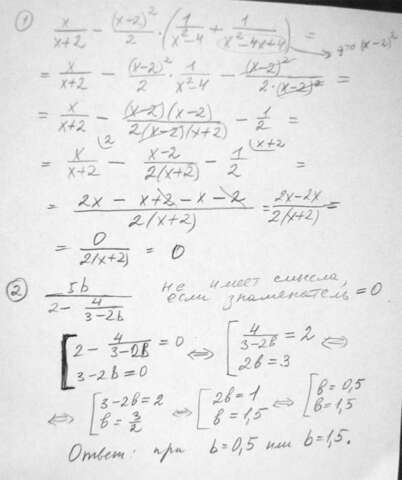 ① x/(x+2) − (x−2)²/2 · (1/(x²−4) + 1/(x²−4x+4)) = → это (x−2)²
= x/(x+2) − (x−2)²/2 · 1/(x²−4) − (x−2)²/(2·(x−2)²) =
= x/(x+2) − (x−2)(x−2)/(2(x−2)(x+2)) − 1/2 =
= x/(x+2) ⌊2 − (x−2)/(2(x+2)) − 1/2 ⌊x+2 =
= (2x − x + 2 − x − 2)/(2(x+2)) = (2x−2x)/(2(x+2)) =
= 0/(2(x+2)) = 0
② 5b/(2 − 4/(3−2b)) не имеет смысла, если знаменатель = 0
[ 2 − 4/(3−2b) = 0 ⇔ [ 4/(3−2b) = 2 ⇔
3−2b = 0 2b = 3
⇔ [ 3−2b = 2 ⇔ [ 2b = 1 ⇔ [ b = 0,5
b = 3/2 b = 1,5 b = 1,5
Ответ: при b = 0,5 или b = 1,5.